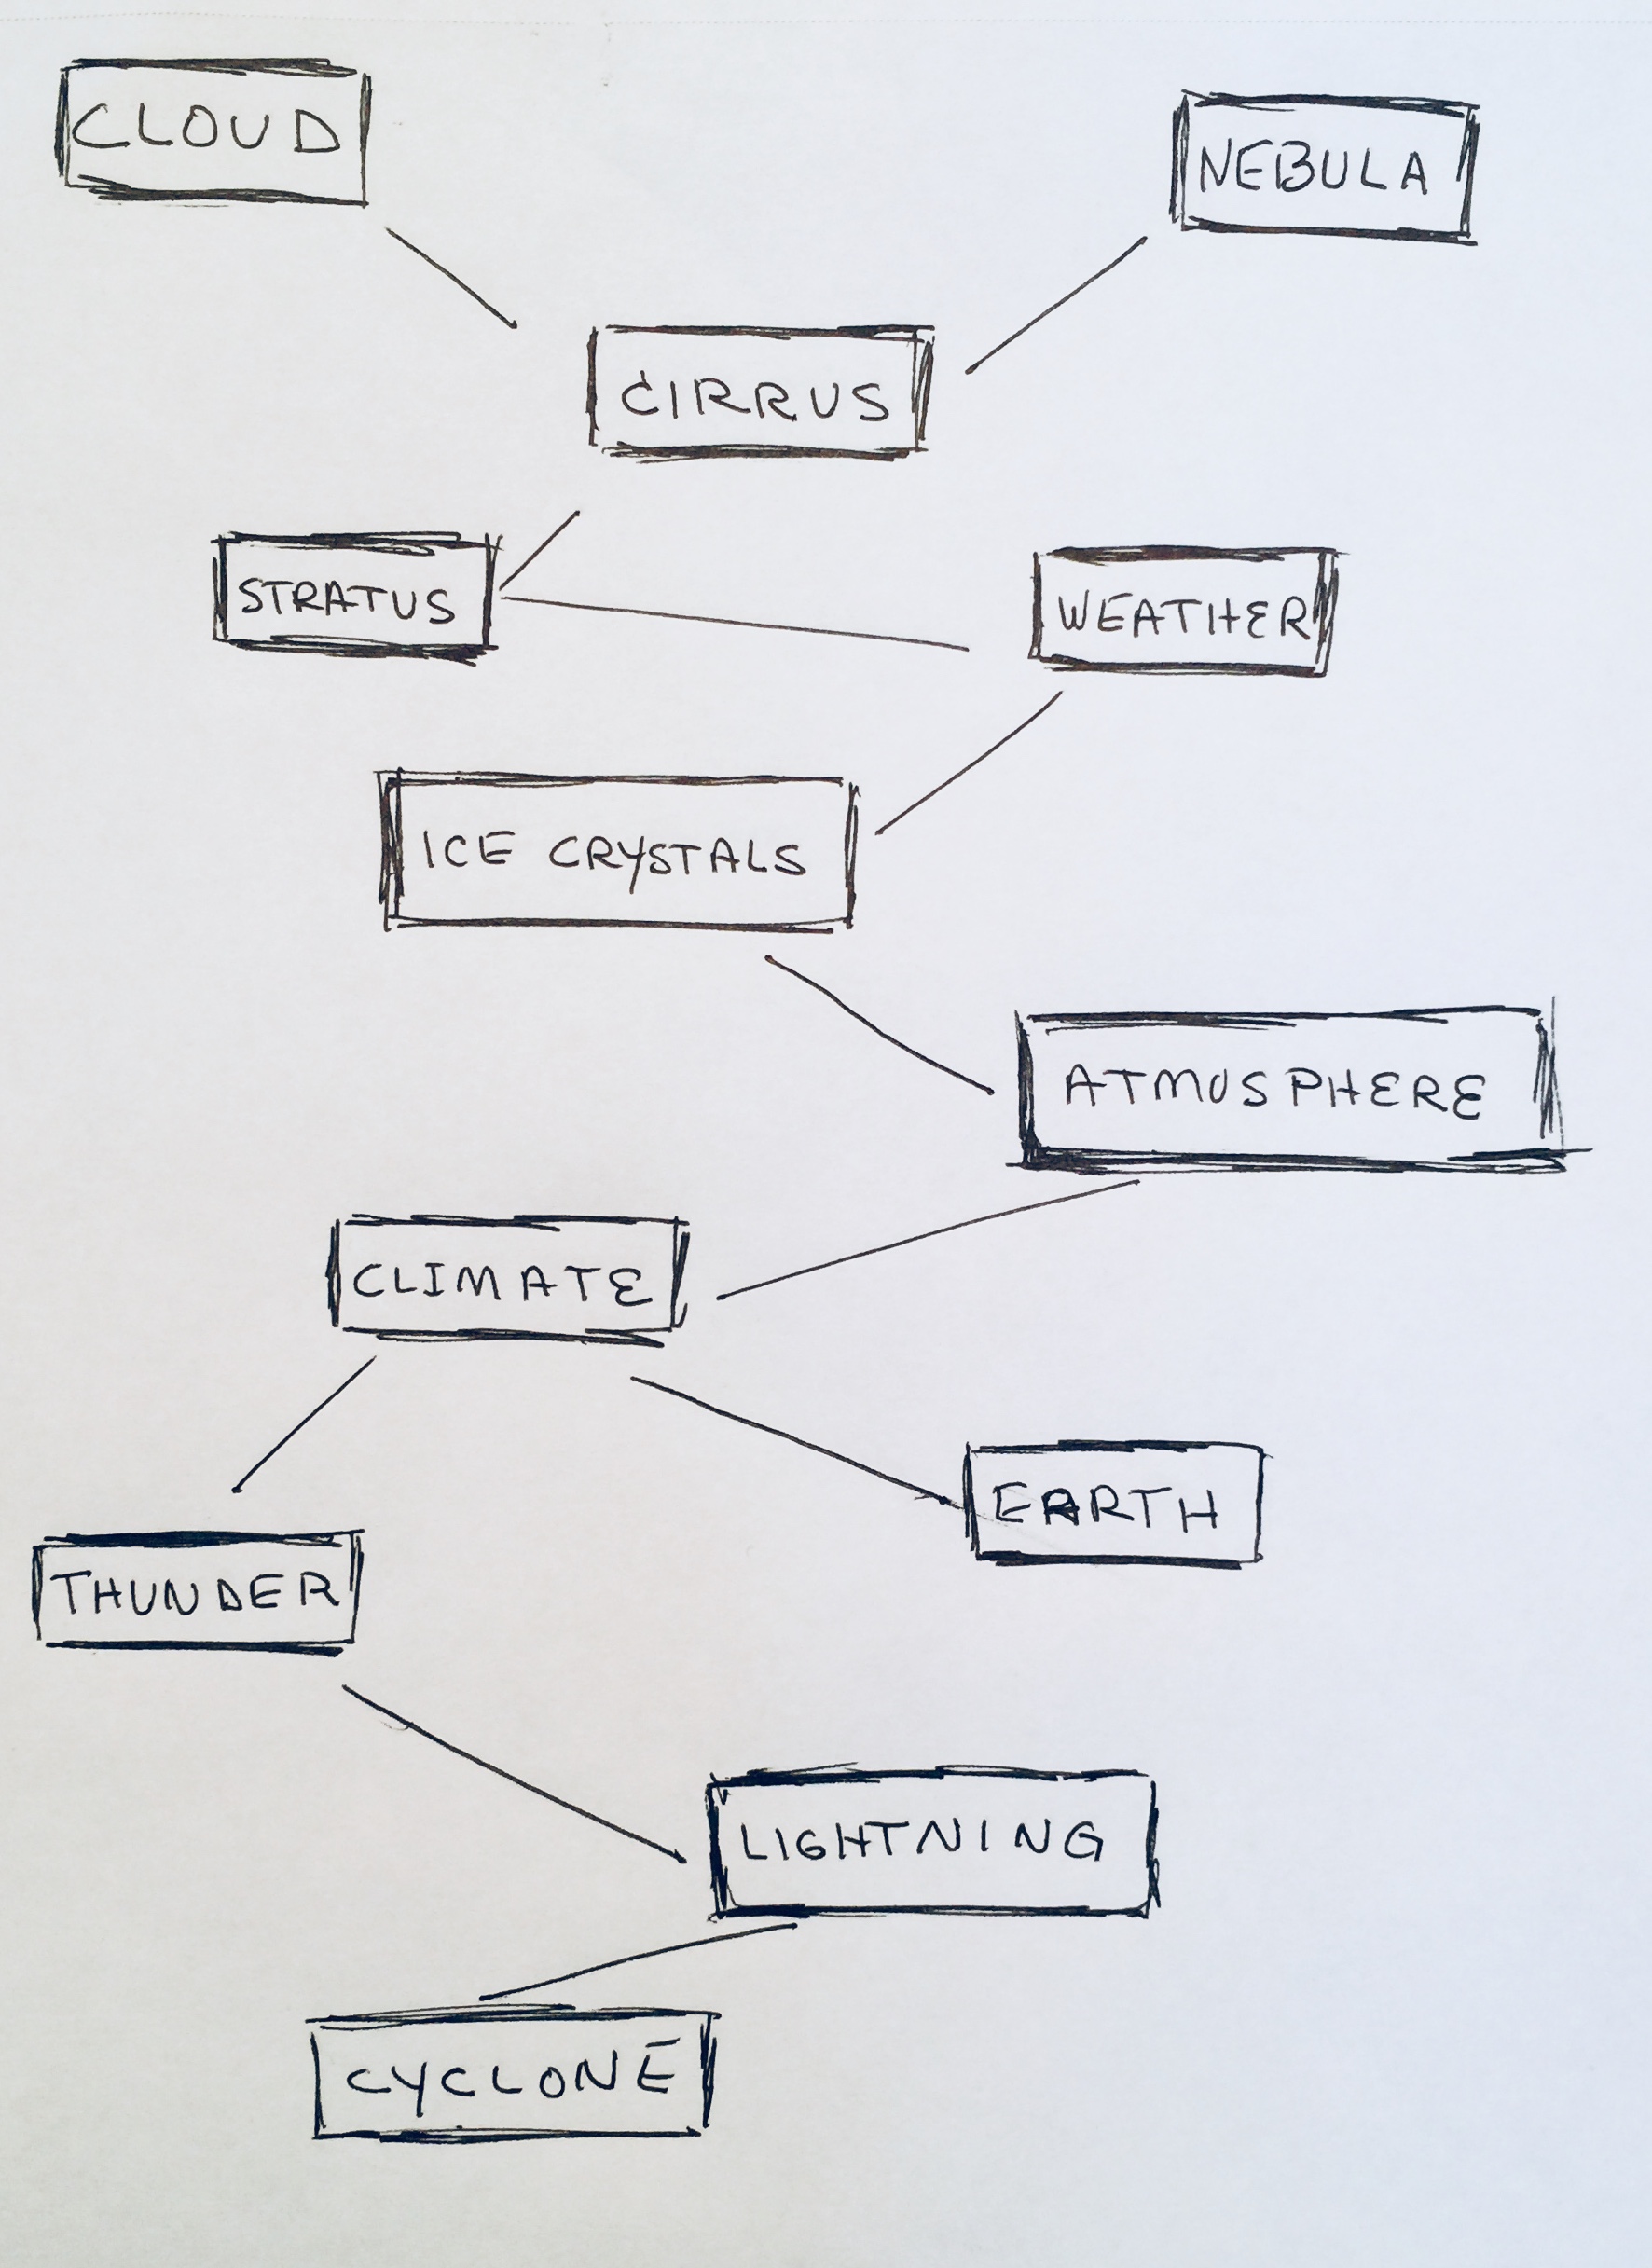 CLOUD
NEBULA
CIRRUS
STRATUS
WEATHER
ICE CRYSTALS
ATMOSPHERE
CLIMATE
EARTH
THUNDER
LIGHTNING
CYCLONE